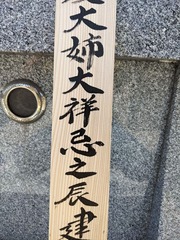 大姉大祥忌之辰建